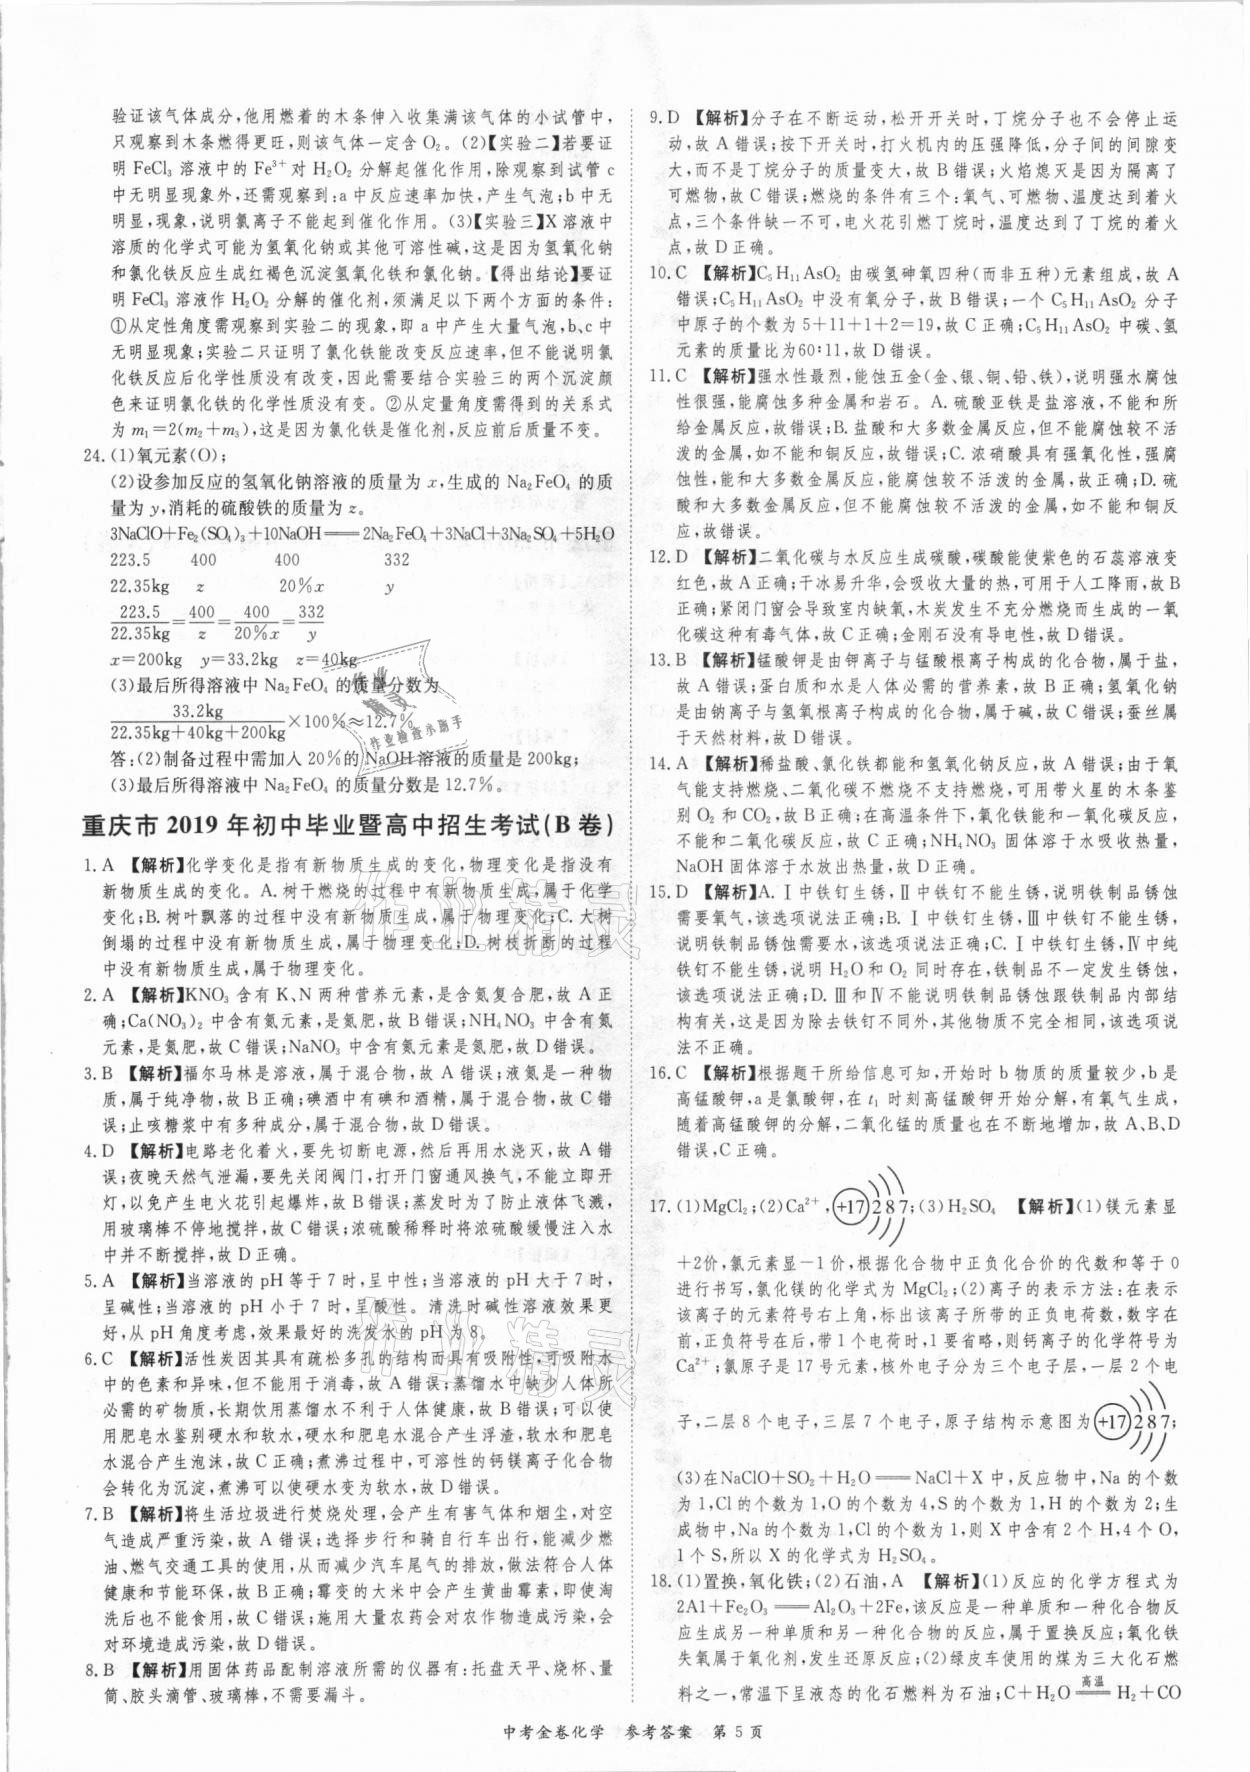 验证该气体成分,他用燃着的木条伸入收集满该气体的小试管中,
只观察到木条燃得更旺,则该气体一定含O₂。(2)【实验二】若要证
明FeCl₃溶液中的Fe³⁺对H₂O₂分解起催化作用,除观察到试管c
中无明显现象外,还需观察到:a中反应速率加快,产生气泡;b中无
明显,现象,说明氯离子不能起到催化作用。(3)【实验三】X溶液中
溶质的化学式可能为氢氧化钠或其他可溶性碱,这是因为氢氧化钠
和氯化铁反应生成红褐色沉淀氢氧化铁和氯化钠。【得出结论】要证
明FeCl₃溶液作H₂O₂分解的催化剂,须满足以下两个方面的条件:
①从定性角度需观察到实验二的现象,即a中产生大量气泡,b、c中
无明显现象;实验二只证明了氯化铁能改变反应速率,但不能说明氯
化铁反应后化学性质没有改变,因此需要结合实验三的两个沉淀颜
色来证明氯化铁的化学性质没有变。②从定量角度需得到的关系式
为m₁=2(m₂+m₃),这是因为氯化铁是催化剂,反应前后质量不变。
24.(1)氧元素(O);
(2)设参加反应的氢氧化钠溶液的质量为x,生成的Na₂FeO₄的质
量为y,消耗的硫酸铁的质量为z。
3NaClO+Fe₂(SO₄)₃+10NaOH══2Na₂FeO₄+3NaCl+3Na₂SO₄+5H₂O
223.5 400 400 332
22.35kg z 20%x y
223.5/22.35kg=400/z=400/20%x=332/y
x=200kg y=33.2kg z=40kg
(3)最后所得溶液中Na₂FeO₄的质量分数为
33.2kg/(22.35kg+40kg+200kg)×100%≈12.7%
答:(2)制备过程中需加入20%的NaOH溶液的质量是200kg;
(3)最后所得溶液中Na₂FeO₄的质量分数是12.7%。
重庆市2019年初中毕业暨高中招生考试(B卷)
1.A 【解析】化学变化是指有新物质生成的变化,物理变化是指没有
新物质生成的变化。A.树干燃烧的过程中有新物质生成,属于化学
变化;B.树叶飘落的过程中没有新物质生成,属于物理变化;C.大树
倒塌的过程中没有新物质生成,属于物理变化;D.树枝折断的过程
中没有新物质生成,属于物理变化。
2.A 【解析】KNO₃含有K、N两种营养元素,是含氮复合肥,故A正
确;Ca(NO₃)₂中含有氮元素,是氮肥,故B错误;NH₄NO₃中含有氮
元素,是氮肥,故C错误;NaNO₃中含有氮元素是氮肥,故D错误。
3.B 【解析】福尔马林是溶液,属于混合物,故A错误;液氮是一种物
质,属于纯净物,故B正确;碘酒中有碘和酒精,属于混合物,故C错
误;止咳糖浆中有多种成分,属于混合物,故D错误。
4.D 【解析】电路老化着火,要先切断电源,然后再用水浇灭,故A错
误;夜晚天然气泄漏,要先关闭阀门,打开门窗通风换气,不能立即开
灯,以免产生电火花引起爆炸,故B错误;蒸发时为了防止液体飞溅,
用玻璃棒不停地搅拌,故C错误;浓硫酸稀释时将浓硫酸缓慢注入水
中并不断搅拌,故D正确。
5.A 【解析】当溶液的pH等于7时,呈中性;当溶液的pH大于7时,
呈碱性;当溶液的pH小于7时,呈酸性。清洗时碱性溶液效果更
好,从pH角度考虑,效果最好的洗发水的pH为8。
6.C 【解析】活性炭因其具有疏松多孔的结构而具有吸附性,可吸附水
中的色素和异味,但不能用于消毒,故A错误;蒸馏水中缺少人体所
必需的矿物质,长期饮用蒸馏水不利于人体健康,故B错误;可以使
用肥皂水鉴别硬水和软水,硬水和肥皂水混合产生浮渣,软水和肥皂
水混合产生泡沫,故C正确;煮沸过程中,可溶性的钙镁离子化合物
会转化为沉淀,煮沸可以使硬水变为软水,故D错误。
7.B 【解析】将生活垃圾进行焚烧处理,会产生有害气体和烟尘,对空
气造成严重污染,故A错误;选择步行和骑自行车出行,能减少燃
油、燃气交通工具的使用,从而减少汽车尾气的排放,做法符合人体
健康和节能环保,故B正确;霉变的大米中会产生黄曲霉素,即使淘
洗后也不能食用,故C错误;施用大量农药会对农作物造成污染,会
对环境造成污染,故D错误。
8.B 【解析】用固体药品配制溶液所需的仪器有:托盘天平、烧杯、量
筒、胶头滴管、玻璃棒,不需要漏斗。
9.D 【解析】分子在不断运动,松开开关时,丁烷分子也不会停止运
动,故A错误;按下开关时,打火机内的压强降低,分子间的间隙变
大,而不是丁烷分子的质量变大,故B错误;火焰熄灭是因为隔离了
可燃物,故C错误;燃烧的条件有三个:氧气、可燃物、温度达到了着火
点,三个条件缺一不可,电火花引燃丁烷时,温度达到了丁烷的着火
点,故D正确。
10.C 【解析】C₅H₁₁AsO₂由碳氢砷氧四种(而非五种)元素组成,故A
错误;C₅H₁₁AsO₂中没有氧分子,故B错误;一个C₅H₁₁AsO₂分子
中原子的个数为5+11+1+2=19,故C正确;C₅H₁₁AsO₂中碳、氢
元素的质量比为60∶11,故D错误。
11.C 【解析】强水性最烈,能蚀五金(金、银、铜、铅、铁),说明强水腐蚀
性很强,能腐蚀多种金属和岩石。A.硫酸亚铁是盐溶液,不能和所
给金属反应,故错误;B.盐酸和大多数金属反应,但不能腐蚀较不活
泼的金属,如不能和铜反应,故错误;C.浓硝酸具有强氧化性,强腐
蚀性,能和大多数金属反应,能腐蚀较不活泼的金属,故正确;D.硫
酸和大多数金属反应,但不能腐蚀较不活泼的金属,如不能和铜反
应,故错误。
12.D 【解析】二氧化碳与水反应生成碳酸,碳酸能使紫色的石蕊溶液变
红色,故A正确;干冰易升华,会吸收大量的热,可用于人工降雨,故B
正确;紧闭门窗会导致室内缺氧,木炭发生不充分燃烧而生成的一氧
化碳这种有毒气体,故C正确;金刚石没有导电性,故D错误。
13.B 【解析】锰酸钾是由钾离子与锰酸根离子构成的化合物,属于盐,
故A错误;蛋白质和水是人体必需的营养素,故B正确;氢氧化钠
是由钠离子与氢氧根离子构成的化合物,属于碱,故C错误;蚕丝属
于天然材料,故D错误。
14.A 【解析】稀盐酸、氯化铁都能和氢氧化钠反应,故A错误;由于氧
气能支持燃烧、二氧化碳不燃烧不支持燃烧,可用带火星的木条鉴
别O₂和CO₂,故B正确;在高温条件下,氧化铁能和一氧化碳反应,
不能和二氧化碳反应,故C正确;NH₄NO₃固体溶于水吸收热量,
NaOH固体溶于水放出热量,故D正确。
15.D 【解析】A.Ⅰ中铁钉生锈,Ⅱ中铁钉不能生锈,说明铁制品锈蚀
需要氧气,该选项说法正确;B.Ⅰ中铁钉生锈,Ⅲ中铁钉不能生锈,
说明铁制品锈蚀需要水,该选项说法正确;C.Ⅰ中铁钉生锈,Ⅳ中纯
铁钉不能生锈,说明H₂O和O₂同时存在,铁制品不一定发生锈蚀,
该选项说法正确;D.Ⅲ和Ⅳ不能说明铁制品锈蚀跟铁制品内部结
构有关,这是因为除去铁钉不同外,其他物质不完全相同,该选项说
法不正确。
16.C 【解析】根据题干所给信息可知,开始时b物质的质量较少,b是
高锰酸钾,a是氯酸钾,在t₁时刻高锰酸钾开始分解,有氧气生成,
随着高锰酸钾的分解,二氧化锰的质量也在不断地增加,故A、B、D
错误,C正确。
17.(1)MgCl₂;(2)Ca²⁺,+17 2 8 7;(3)H₂SO₄ 【解析】(1)镁元素显
+2价,氯元素显−1价,根据化合物中正负化合价的代数和等于0
进行书写,氯化镁的化学式为MgCl₂;(2)离子的表示方法:在表示
该离子的元素符号右上角,标出该离子所带的正负电荷数,数字在
前,正负符号在后,带1个电荷时,1要省略,则钙离子的化学符号为
Ca²⁺;氯原子是17号元素,核外电子分为三个电子层,一层2个电
子,二层8个电子,三层7个电子,原子结构示意图为+17 2 8 7;
(3)在NaClO+SO₂+H₂O══NaCl+X中,反应物中,Na的个数
为1,Cl的个数为1,O的个数为4,S的个数为1,H的个数为2;生
成物中,Na的个数为1,Cl的个数为1,则X中含有2个H,4个O,
1个S,所以X的化学式为H₂SO₄。
18.(1)置换,氧化铁;(2)石油,A 【解析】(1)反应的化学方程式为
2A1+Fe₂O₃══Al₂O₃+2Fe,该反应是一种单质和一种化合物反
应生成另一种单质和另一种化合物的反应,属于置换反应;氧化铁
失氧属于氧化剂,发生还原反应;(2)绿皮车使用的煤为三大化石燃
料之一,常温下呈液态的化石燃料为石油;C+H₂O═高温═H₂+CO
中考金卷化学 参考答案 第5页
作业精灵
作业检查小助手
作业精灵
作业精灵